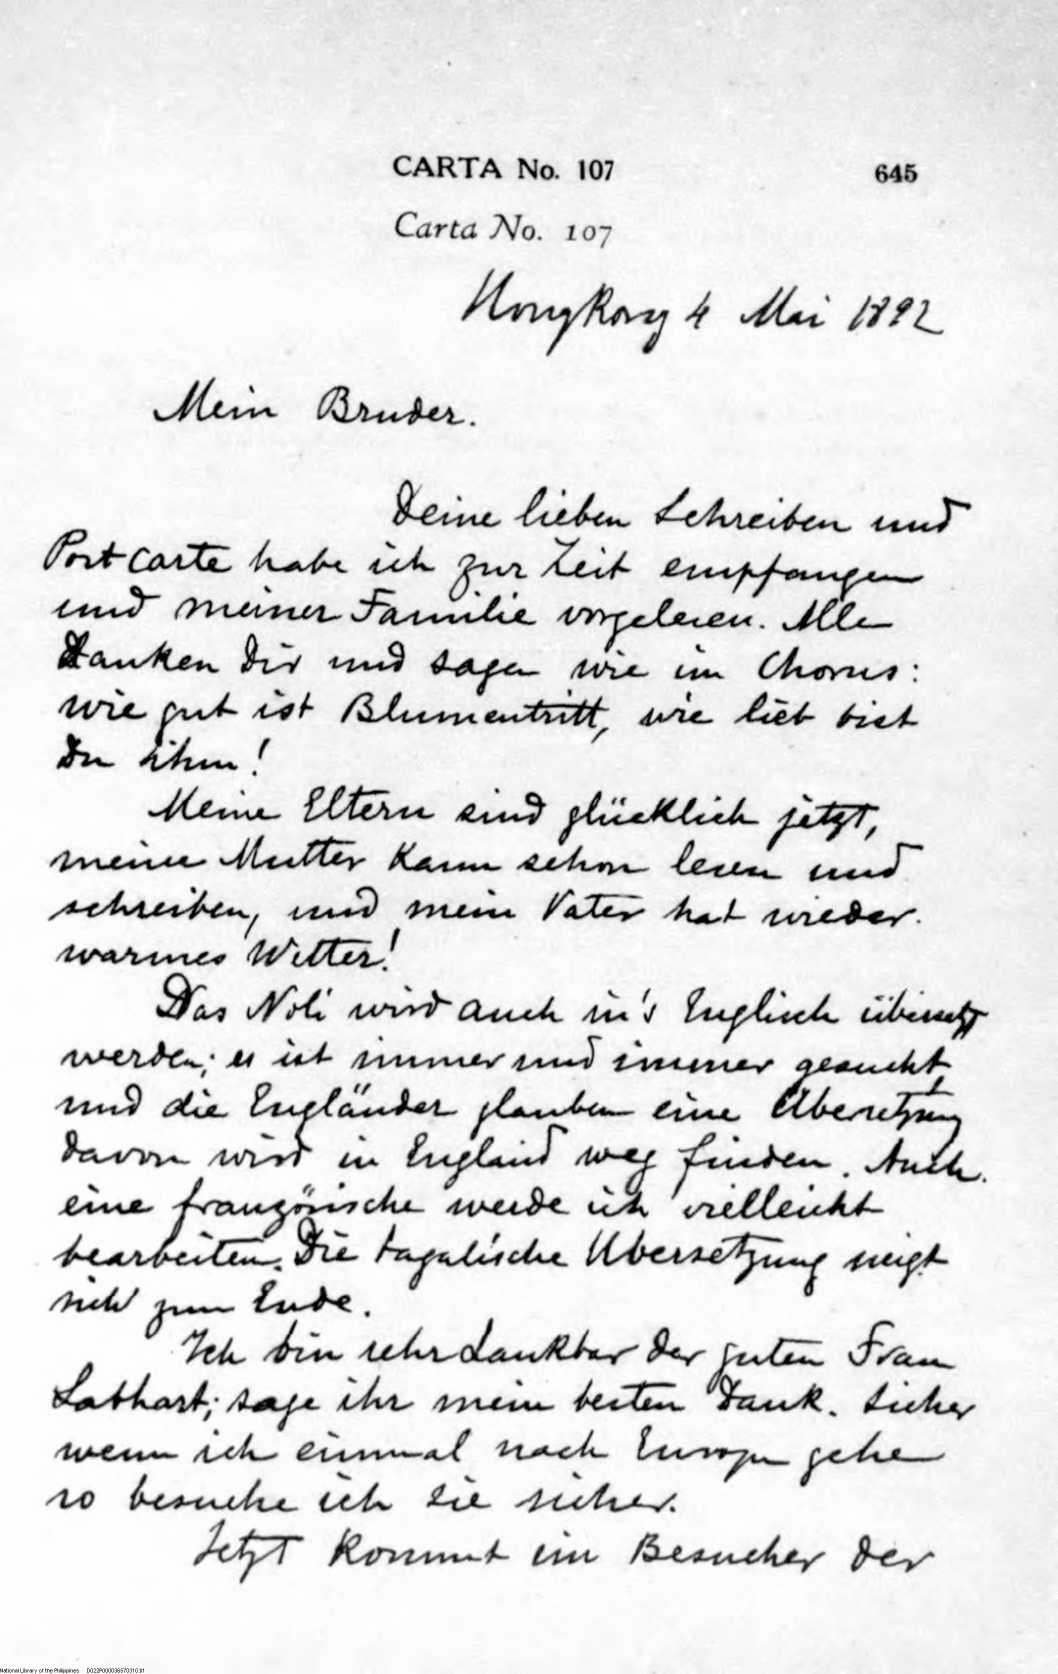 CARTA No. 107 645
Carta No. 107
Hongkong 4 Mai 1892
Mein Bruder.
Deine lieben Schreiben und
Postcarte habe ich zur Zeit empfangen
und meiner Familie vorgelesen. Alle
Danken Dir und sagen wie im Chorus:
wie gut ist Blumentritt, wie lieb bist
Du ihm!
Meine Eltern sind glücklich jetzt,
meine Mutter kann schon lesen und
schreiben, und mein Vater hat wieder
warmes Wetter!
Das Noli wird auch in's Englisch übersetzt
werden; es ist immer und immer gesucht
und die Engländer glauben eine Übersetzung
davon wird in England weg finden. Auch
eine französische werde ich vielleicht
bearbeiten. Die tagalische Ubersetzung neigt
sich zum Ende.
Ich bin sehr dankbar der guten Frau
Labhart; sage ihr mein besten Dank. Sicher
wenn ich einmal nach Europa gehe
so besuche ich sie sicher.
Jetzt kommt ein Besucher der
National Library of the Philippines